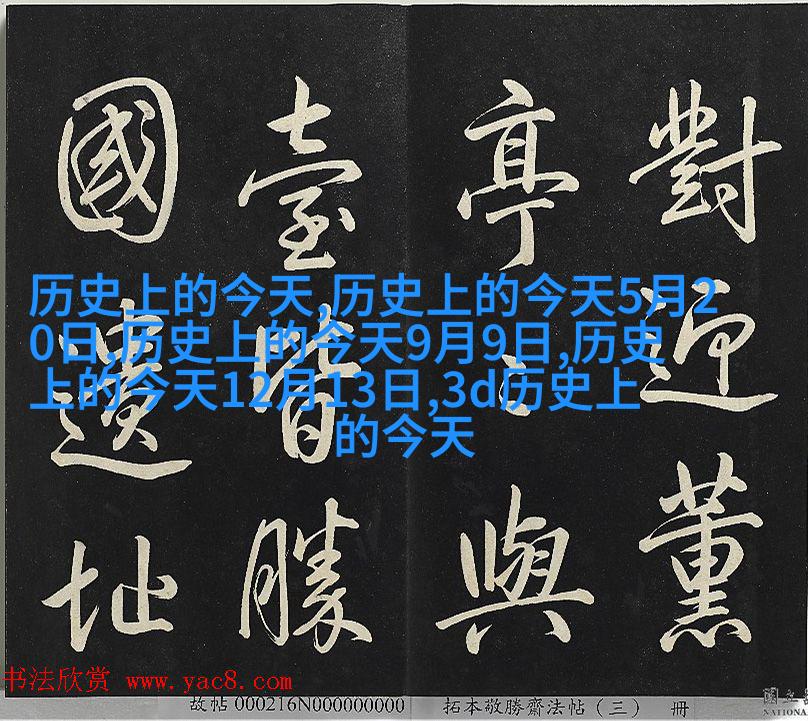 對迎薰
亭與
臺皆勝
國遺址
历史上的今天,历史上的今天5月2
0日,历史上的今天9月9日,历史
上的今天12月13日,3d历史上
的今天
书法欣赏 www.yac8.com
故帖 000216N000000000 拓本敬勝齋法帖（三） 册
國立
NATIONA